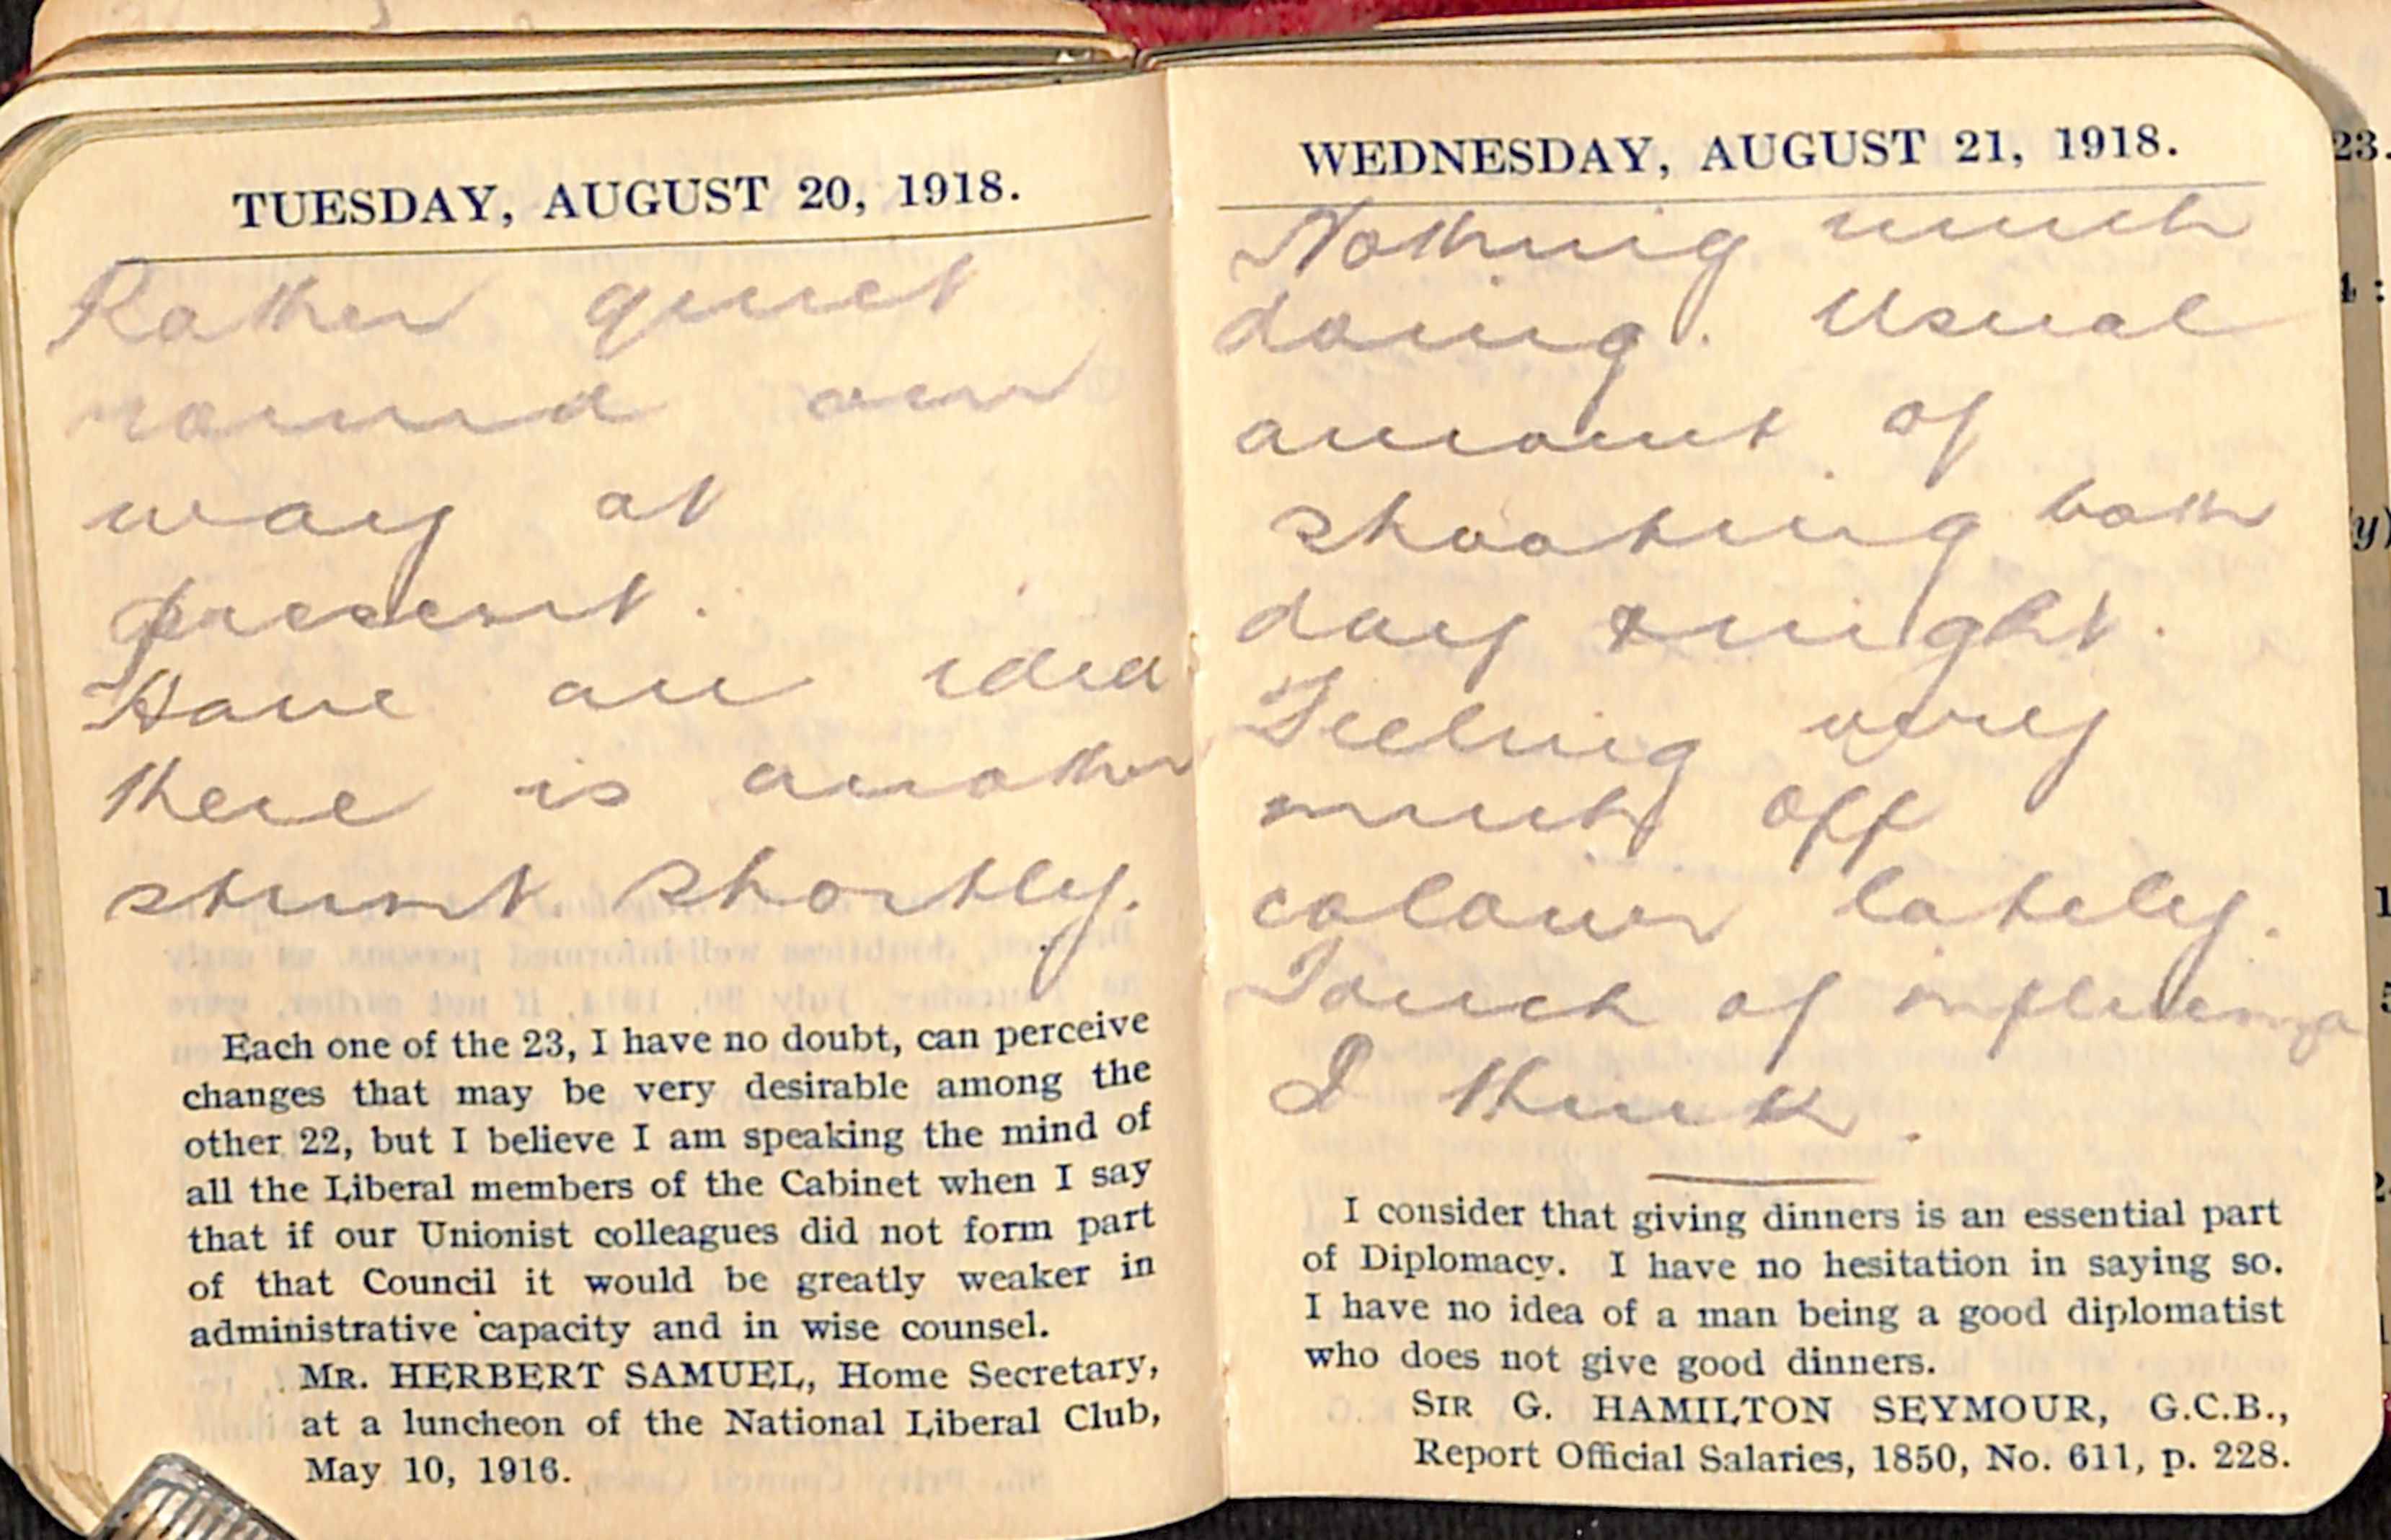 TUESDAY, AUGUST 20, 1918.
Rather quiet
round our
way at
present.
Have an idea
there is another
stunt shortly.
Each one of the 23, I have no doubt, can perceive
changes that may be very desirable among the
other 22, but I believe I am speaking the mind of
all the Liberal members of the Cabinet when I say
that if our Unionist colleagues did not form part
of that Council it would be greatly weaker in
administrative capacity and in wise counsel.
MR. HERBERT SAMUEL, Home Secretary,
at a luncheon of the National Liberal Club,
May 10, 1916.
WEDNESDAY, AUGUST 21, 1918.
Nothing much
doing. Usual
amount of
shooting both
day & night.
Feeling very
much off
colour lately.
Touch of influenza
I think.
I consider that giving dinners is an essential part
of Diplomacy. I have no hesitation in saying so.
I have no idea of a man being a good diplomatist
who does not give good dinners.
SIR G. HAMILTON SEYMOUR, G.C.B.,
Report Official Salaries, 1850, No. 611, p. 228.
23.